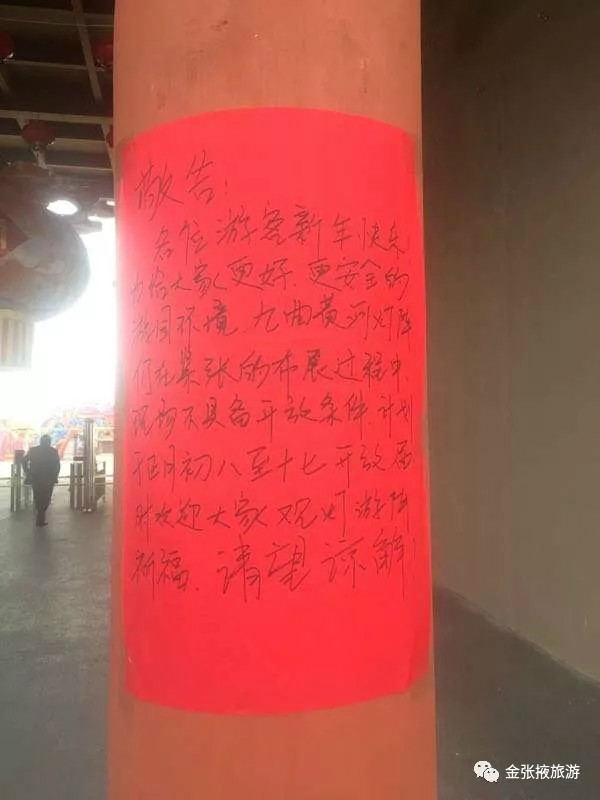 敬告:
各位游客新年快乐
为给大家更好、更安全的
游园环境,九曲黄河灯阵
仍在紧张的布展过程中,
现场不具备开放条件,计划
于正月初八至十七开放届
时欢迎大家观灯游阵
祈福、请望谅解!
金张掖旅游